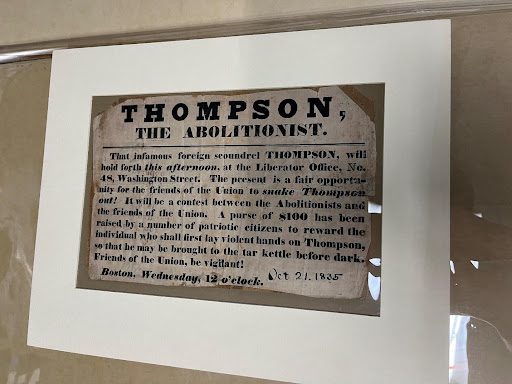 THOMPSON,
THE ABOLITIONIST.
That infamous foreign scoundrel THOMPSON, will
hold forth this afternoon, at the Liberator Office, No.
48, Washington Street. The present is a fair opportu-
nity for the friends of the Union to snake Thompson
out! It will be a contest between the Abolitionists and
the friends of the Union. A purse of $100 has been
raised by a number of patriotic citizens to reward the
individual who shall first lay violent hands on Thompson,
so that he may be brought to the tar kettle before dark.
Friends of the Union, be vigilant!
Boston, Wednesday, 12 o'clock. Oct 21. 1835